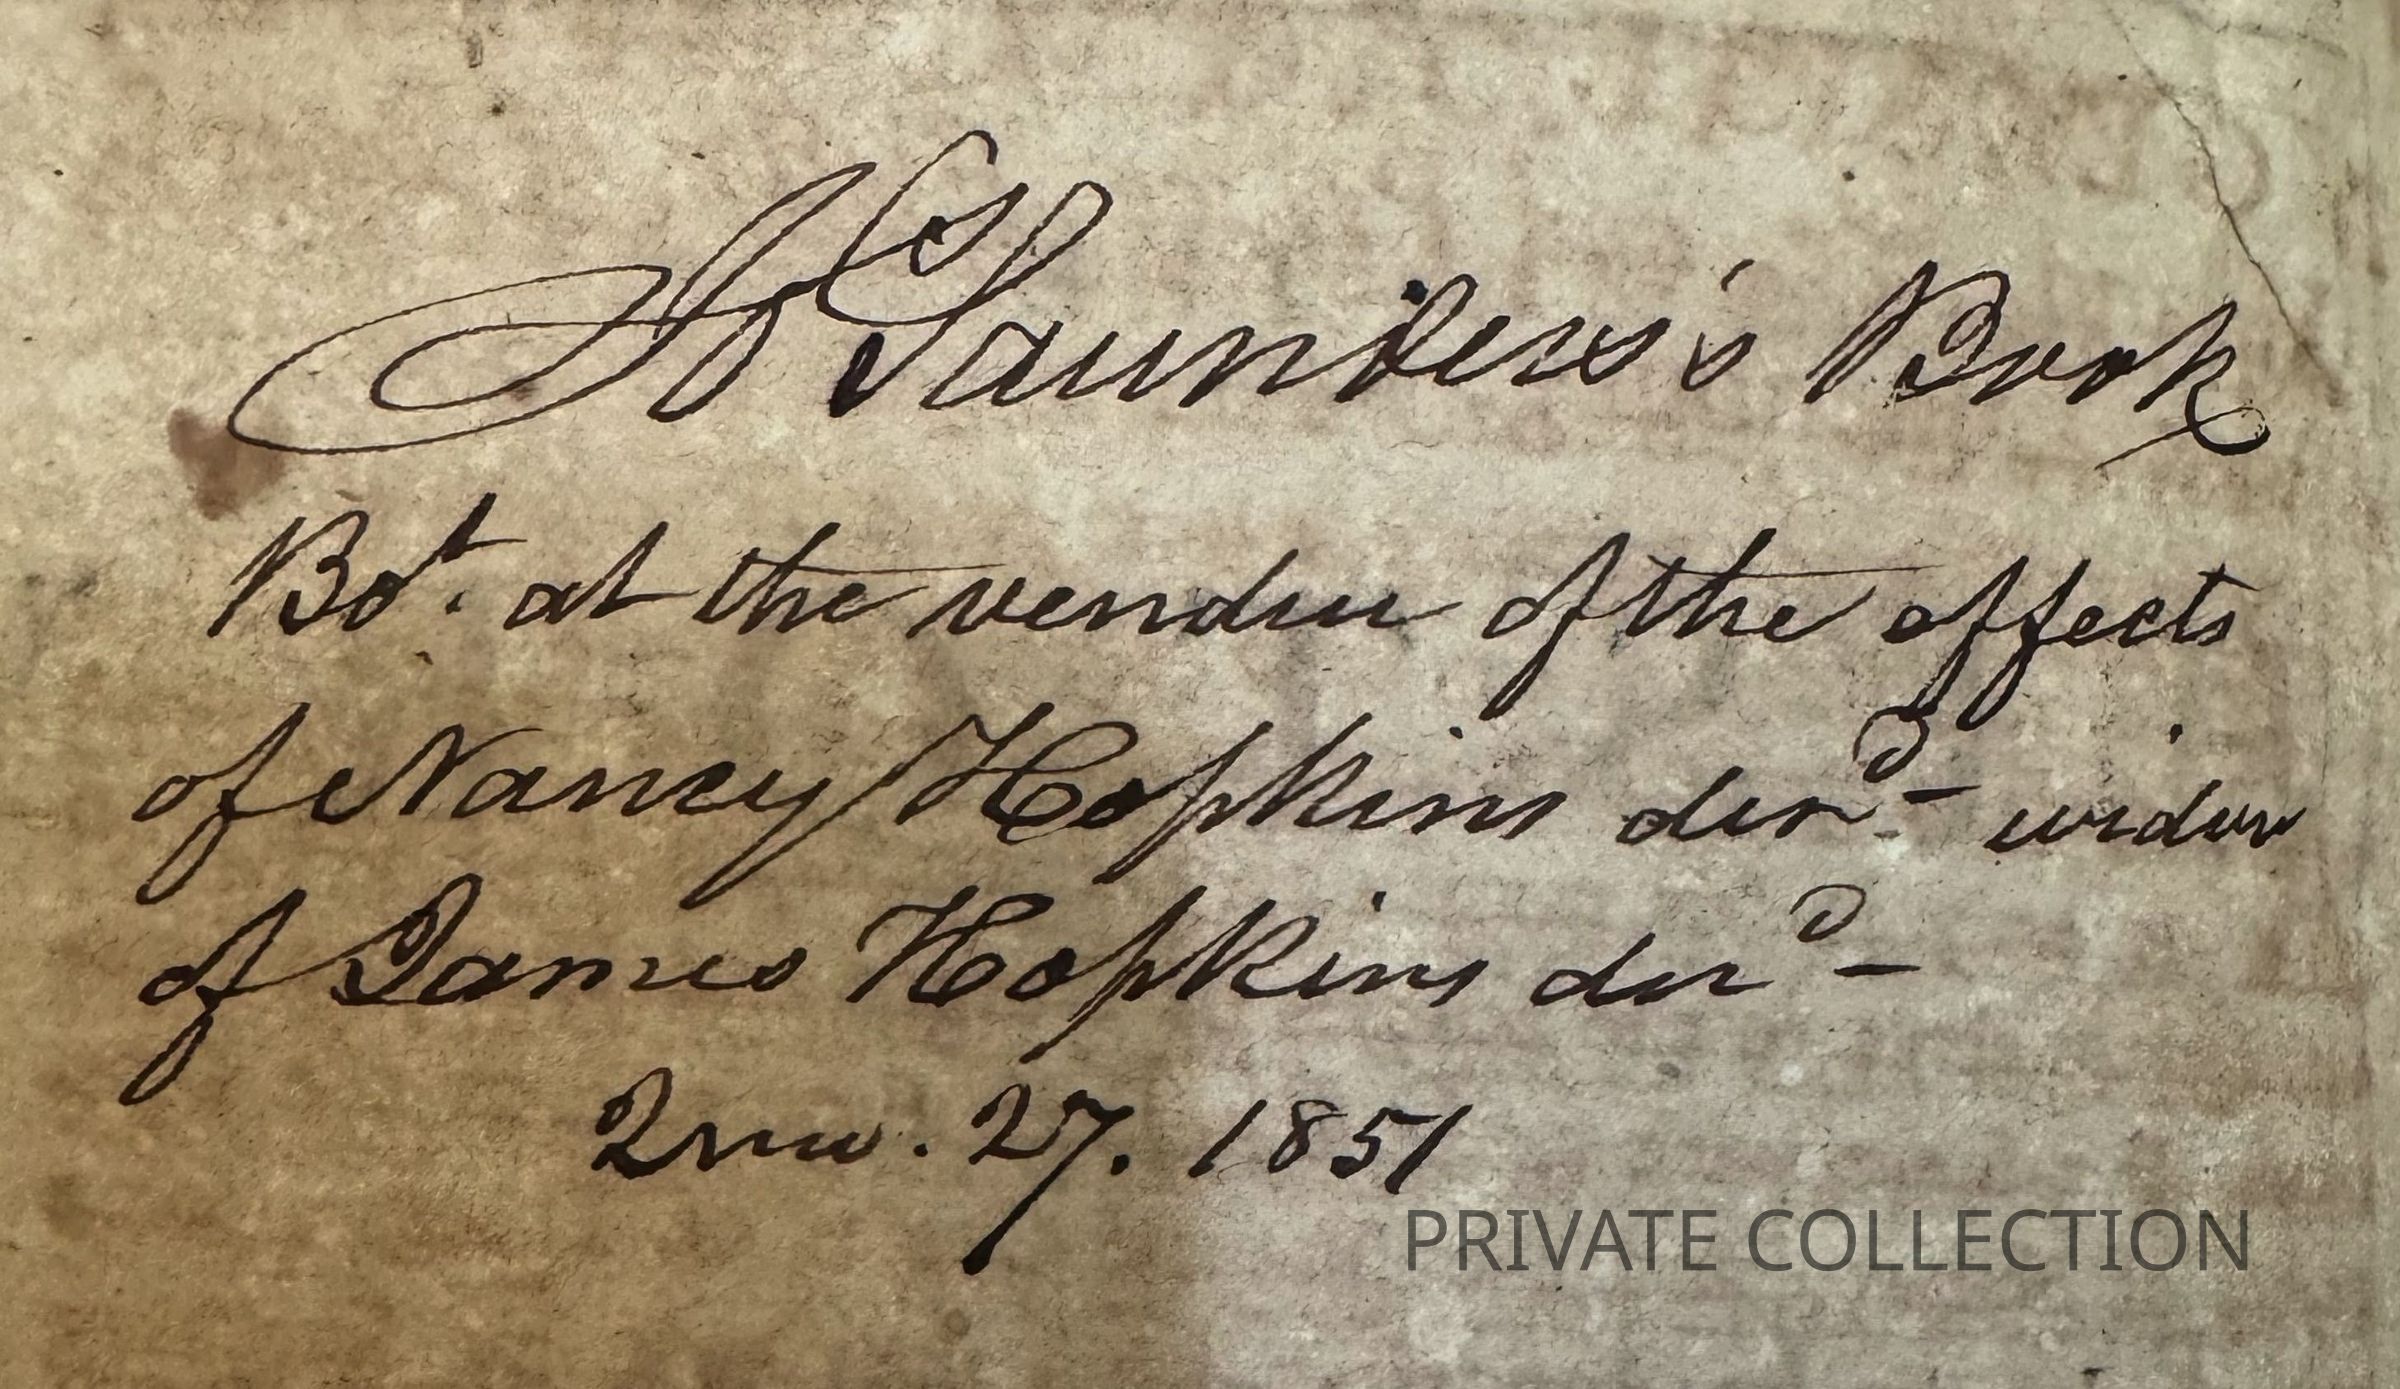 H Saunders's Book
Bot. at the vendue of the effects
of Nancy Hopkins decd widow
of James Hopkins decd
2mo. 27. 1851
PRIVATE COLLECTION